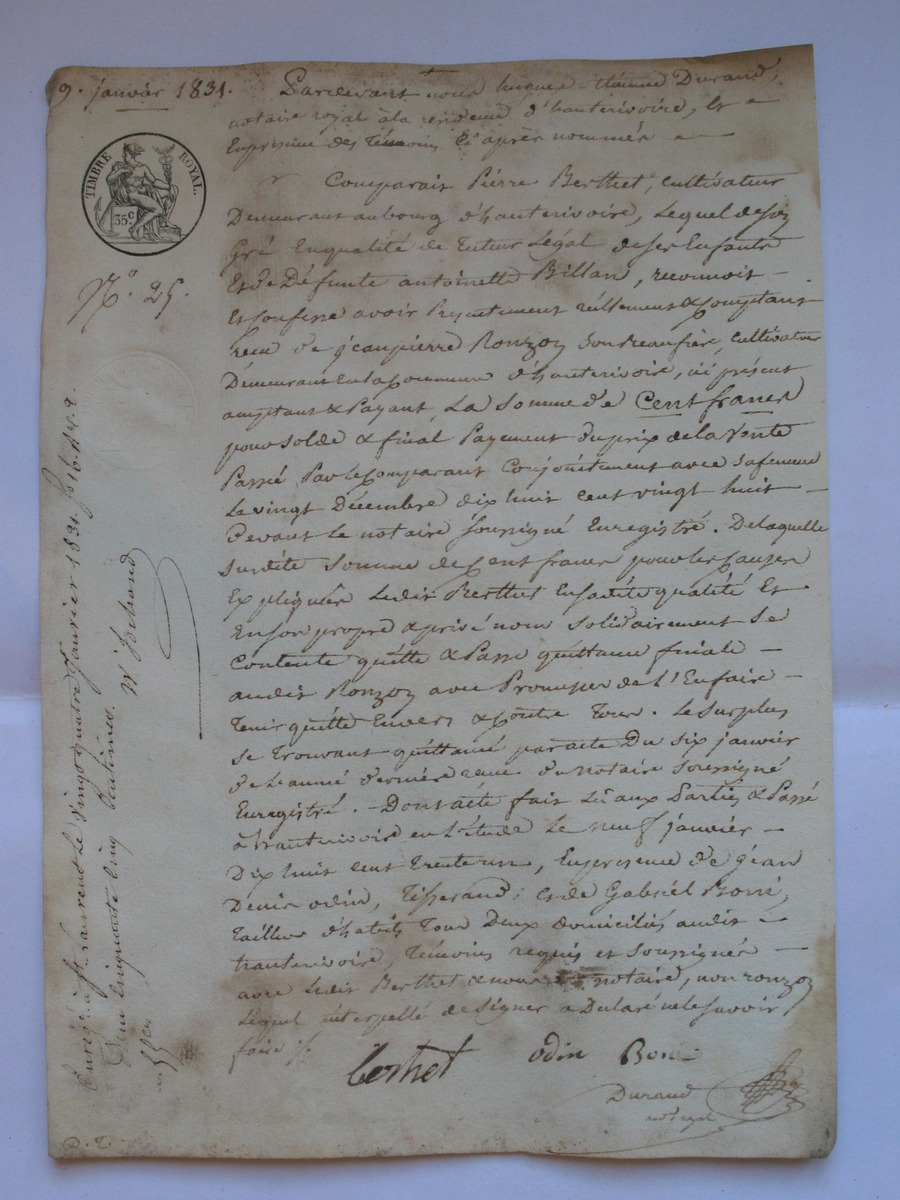 9. janvier 1831.
TIMBRE ROYAL.
35c
No. 25.
Pardevant nous hugues-étienne Durand,
notaire royal à la residence d'hauterivoire, Et
En presence des Témoins Ci après nommés
Comparait Pierre Berthet, cultivateur
Demeurant au bourg d'hauterivoire, Lequel de son
Gré En qualité de Tuteur Légal de ses Enfants
Et de Défunte antoinette Billan, reconnoit
Et Confesse avoir Presentement réellement & Comptant
recu de jean pierre Ronzon son beau frère, cultivateur
Demeurant en la Commune d'hauterivoire, ici présent
acceptant & Payant, La Somme de Cent francs
pour solde & final Payement du prix de la Vente
Passée Par le Comparant Conjointement avec sa femme
Le vingt Décembre dix huit cent vingt huit
Devant le notaire soussigné Enregistré. De laquelle
susdite somme de Cent francs pour les Causes
Expliquées Ledit Berthet En sadite qualité Et
En son propre & privé nom solidairement se
Contente quitte & Passe quittance finale
audit Ronzon avec Promesse de l'En faire
Tenir quitte Envers & Contre Tous. Le surplus
se Trouvant quittancé par acte Du six janvier
de l'année dernière recu du Notaire soussigné
Enregistré. - Dont acte fait Lu aux Parties & Passé
à hauterivoire en l'étude Le neuf janvier
Dix huit cent Trente un, En presence de jean
Denis odin, Tisserand; et de Gabriel Boni,
Tailleur d'habits Tous Deux domiciliés audit
hauterivoire, Témoins requis et soussignés
avec Ledit Berthet & nous notaire, non ronzon
Lequel interpellé de signer a Déclaré ne le savoir
faire ./.
berthet odin Boni
Durand
not. royal
Enregé. à St. Laurent le vingt quatre Janvier 1831. fo. 16
Reçu cinquante cinq Centimes.
55ces